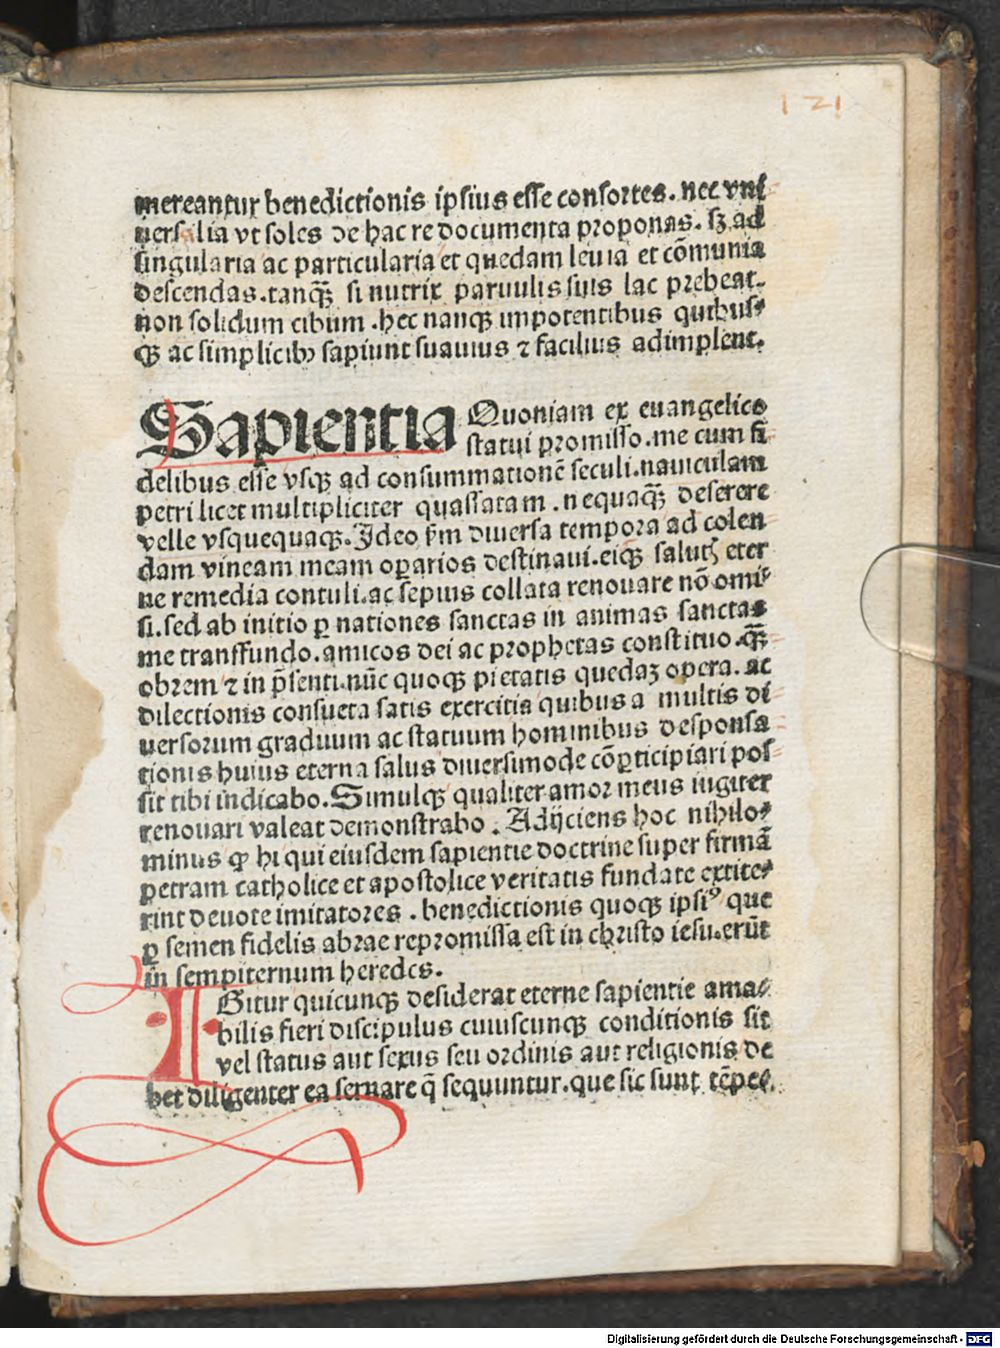 121
mereantur benedictionis ipsius esse consortes. nec vni
uersalia vt soles de hac re documenta proponas. sꝫ ad
singularia ac particularia et quedam leuia et cōmunia
descendas. tanqꝫ̄ si nutrix paruulis suis lac prebeat.
non solidum cibum. hec nanqꝫ impotentibus quibus⸗
qꝫ ac simplicibꝫ sapiunt suauius ⁊ facilius adimplent.
Sapientia Quoniam ex euangelico
statui promisso. me cum fi
delibus esse vsqꝫ ad consummationē seculi. nauiculam
petri licet multipliciter quassatam. nequaqꝫ̄ deserere
velle vsquequaqꝫ. Ideo s̄m diuersa tempora ad colen
dam vineam meam oꝑarios destinaui. eiqꝫ salutꝭ eter
ne remedia contuli. ac sepius collata renouare nō omi⸗
si. sed ab initio ꝑ nationes sanctas in animas sanctas
me transfundo. amicos dei ac prophetas constituo. qꝫ̄
obrem ⁊ in p̄senti. nūc quoqꝫ pietatis quedaꝫ opera. ac
dilectionis consueta satis exercitia quibus a multis di
uersorum graduum ac statuum hominibus desponsa
tionis huius eterna salus diuersimode cōꝑticipiari pos
sit tibi indicabo. Simulqꝫ qualiter amor meus iugiter
renouari valeat demonstrabo. Adijciens hoc nihilo⸗
minus ꝙ hi qui eiusdem sapientie doctrine super firmā
petram catholice et apostolice veritatis fundate extite⸗
rint deuote imitatores. benedictionis quoqꝫ ipsiꝰ que
ꝑ semen fidelis abrae repromissa est in christo iesu. erūt
in sempiternum heredes.
IGitur quicunqꝫ desiderat eterne sapientie ama⸗
bilis fieri discipulus cuiuscunqꝫ conditionis sit
vel status aut sexus seu ordinis aut religionis de
bet diligenter ea seruare q̄ sequuntur. que sic sunt tēpe⸗
Digitalisierung gefördert durch die Deutsche Forschungsgemeinschaft - DFG